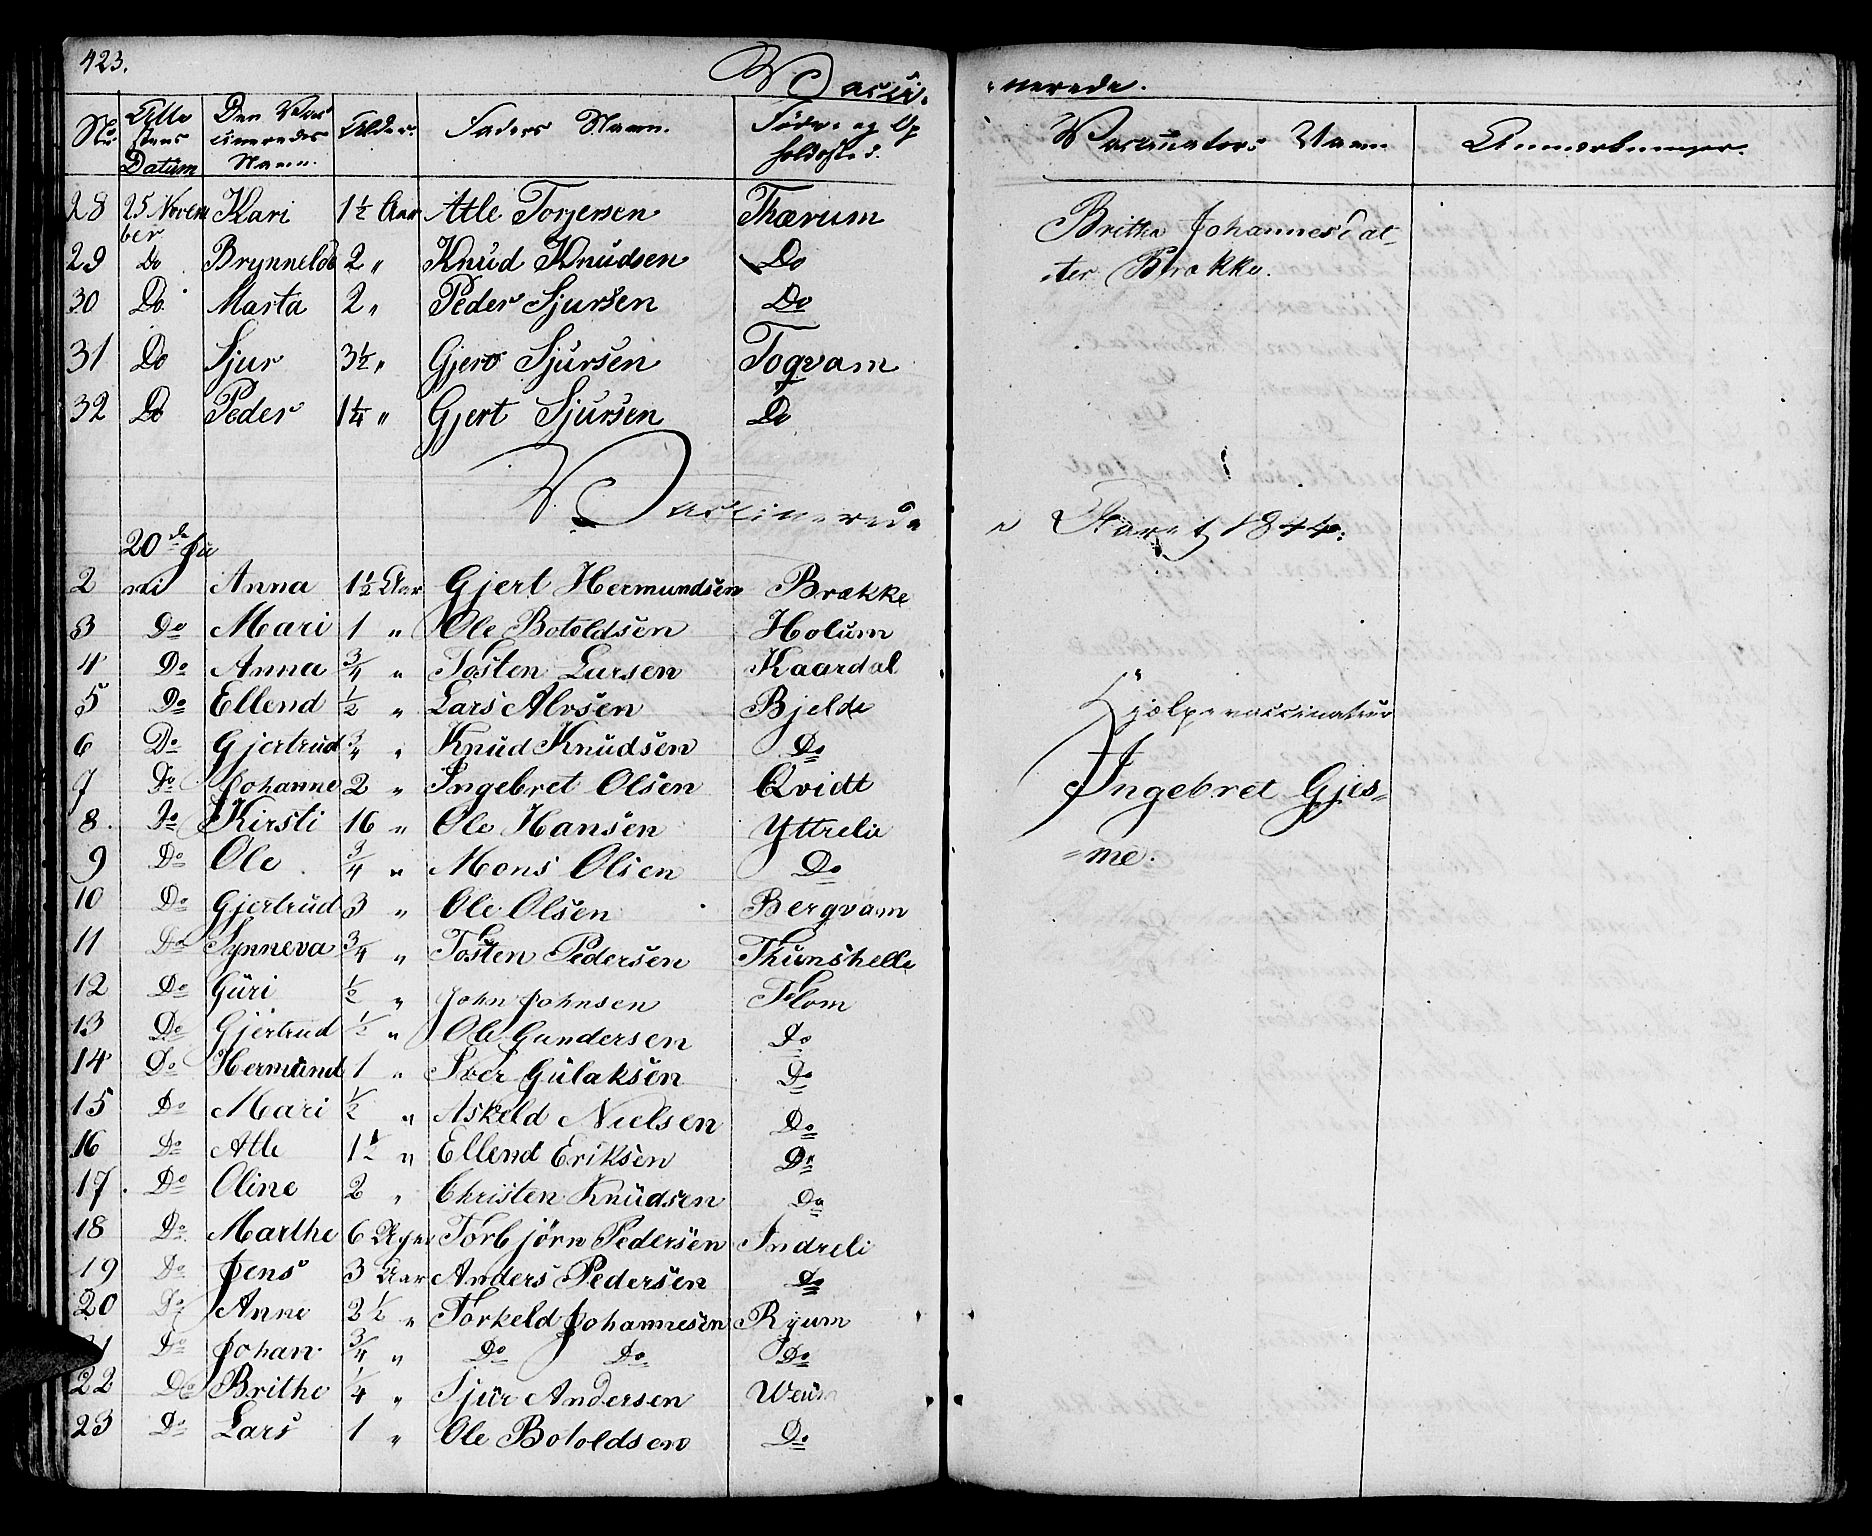 423.
Vacci-
nerede.
No. | Atte stens Datum | Den Vac cineredes Navn. | Alder. | Faders Navn. | Føde- og Op holdssted. | Vaccinators Navn | Anmærkninger.
28 25 Novem ber Kari 1½ Aar Atle Torjersen Thærum Britha Johannesdat-
29 Do Brynnelde 2 " Knud Knudsen Do ter Brække.
30 Do. Marta 2 " Peder Sjursen Do
31 Do Sjur 3½ " Gjert Sjursen Togvam
32 Do Peder 1¼ " Gjert Sjursen Do
Vaccinerede
i Aaret 1844.
20de Ju
2 ni Anna 1½ Aar Gjert Hermundsen Brække
3 Do Mari 1 " Ole Botoldsen Holum
4 Do Anna ¾ " Tosten Larsen Kaardal
5 Do Ellend ½ " Lars Alvsen Bjelde Hjelpevaccinateur
6 Do Gjertrud ¾ " Knud Knudsen Do
7 Do Johanne 2 " Ingebret Olsen Qvidt Ingebret Gjes=
8. Do Kirsti 16 " Ole Hansen Yttrelie
9 Do Ole ¾ " Mons Olsen Do =me.
10 Do Gjertrud 3 " Ole Olsen Bergvam
11 Do Synneva ¾ " Tosten Pedersen Thunshelle
12 Do Guri ½ " John Johnsen Flom
13 Do Gjertrud ½ " Ole Gundersen Do
14 Do Hermund 1 " Iver Gulaksen Do
15 Do Mari ½ " Askeld Nielsen Do
16 Do Atle 1½ " Ellend Eriksen Do
17. Do Oline 2 " Christen Knudsen Do
18 Do Marthe 6 Uger Torbjørn Pedersen Indreli
19 Do Jens 3 Aar Anders Pedersen Do
20 Do Anne 2½ " Torkeld Johannesen Ryum
21 Do Johan ¾ " Do Do Do
22 Do Brithe ¼ " Sjur Andersen Weum
23 Do Lars 1 " Ole Botoldsen Do